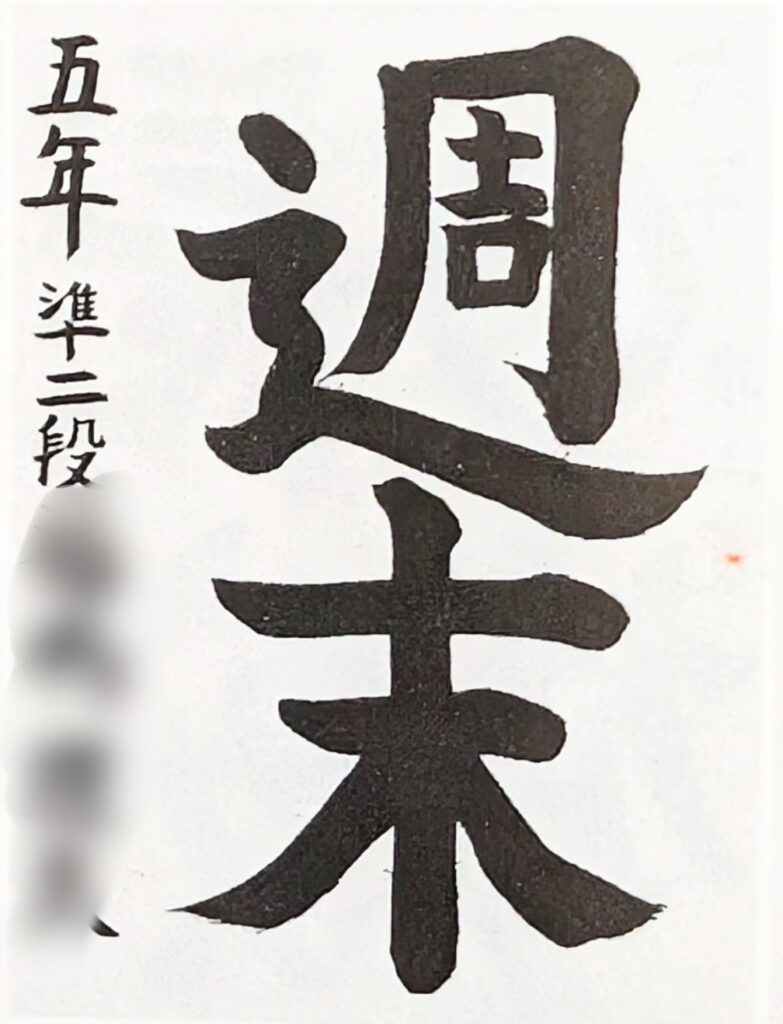 週末
五年 準二段